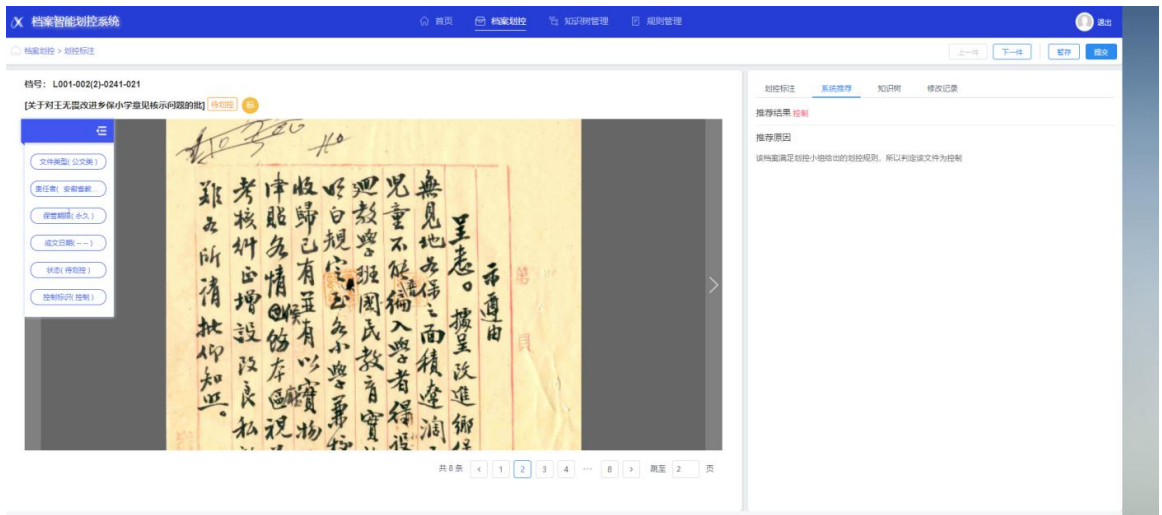 档案智能划控系统
首页
档案划控
知识树管理
规则管理
退出
档案划控 > 划控标注
上一件
下一件
暂存
提交
档号: L001-002(2)-0241-021
[关于对王无畏改进乡保小学意见核示问题的批]
待划控
标
文件类型( 公文类 )
责任者( 安徽省教...)
保管期限( 永久 )
成文日期( -- )
状态( 待划控 )
控制标识( 控制 )
示遵由
呈悉。據呈改進鄉保
無見地各保之面積遼濶
兒童不能編入學者得設
廻教學班國民教育實
明白規定至各小學兼
收歸已有並有以實物
津貼各情候飭本區視
考核糾正增設改良私
難各所请批仰知照。
共 8 条
< 1 2 3 4 ··· 8 >
跳至 2 页
划控标注
系统推荐
知识树
修改记录
推荐结果 控制
推荐原因
该档案满足划控小组给出的划控规则，所以判定该文件为控制